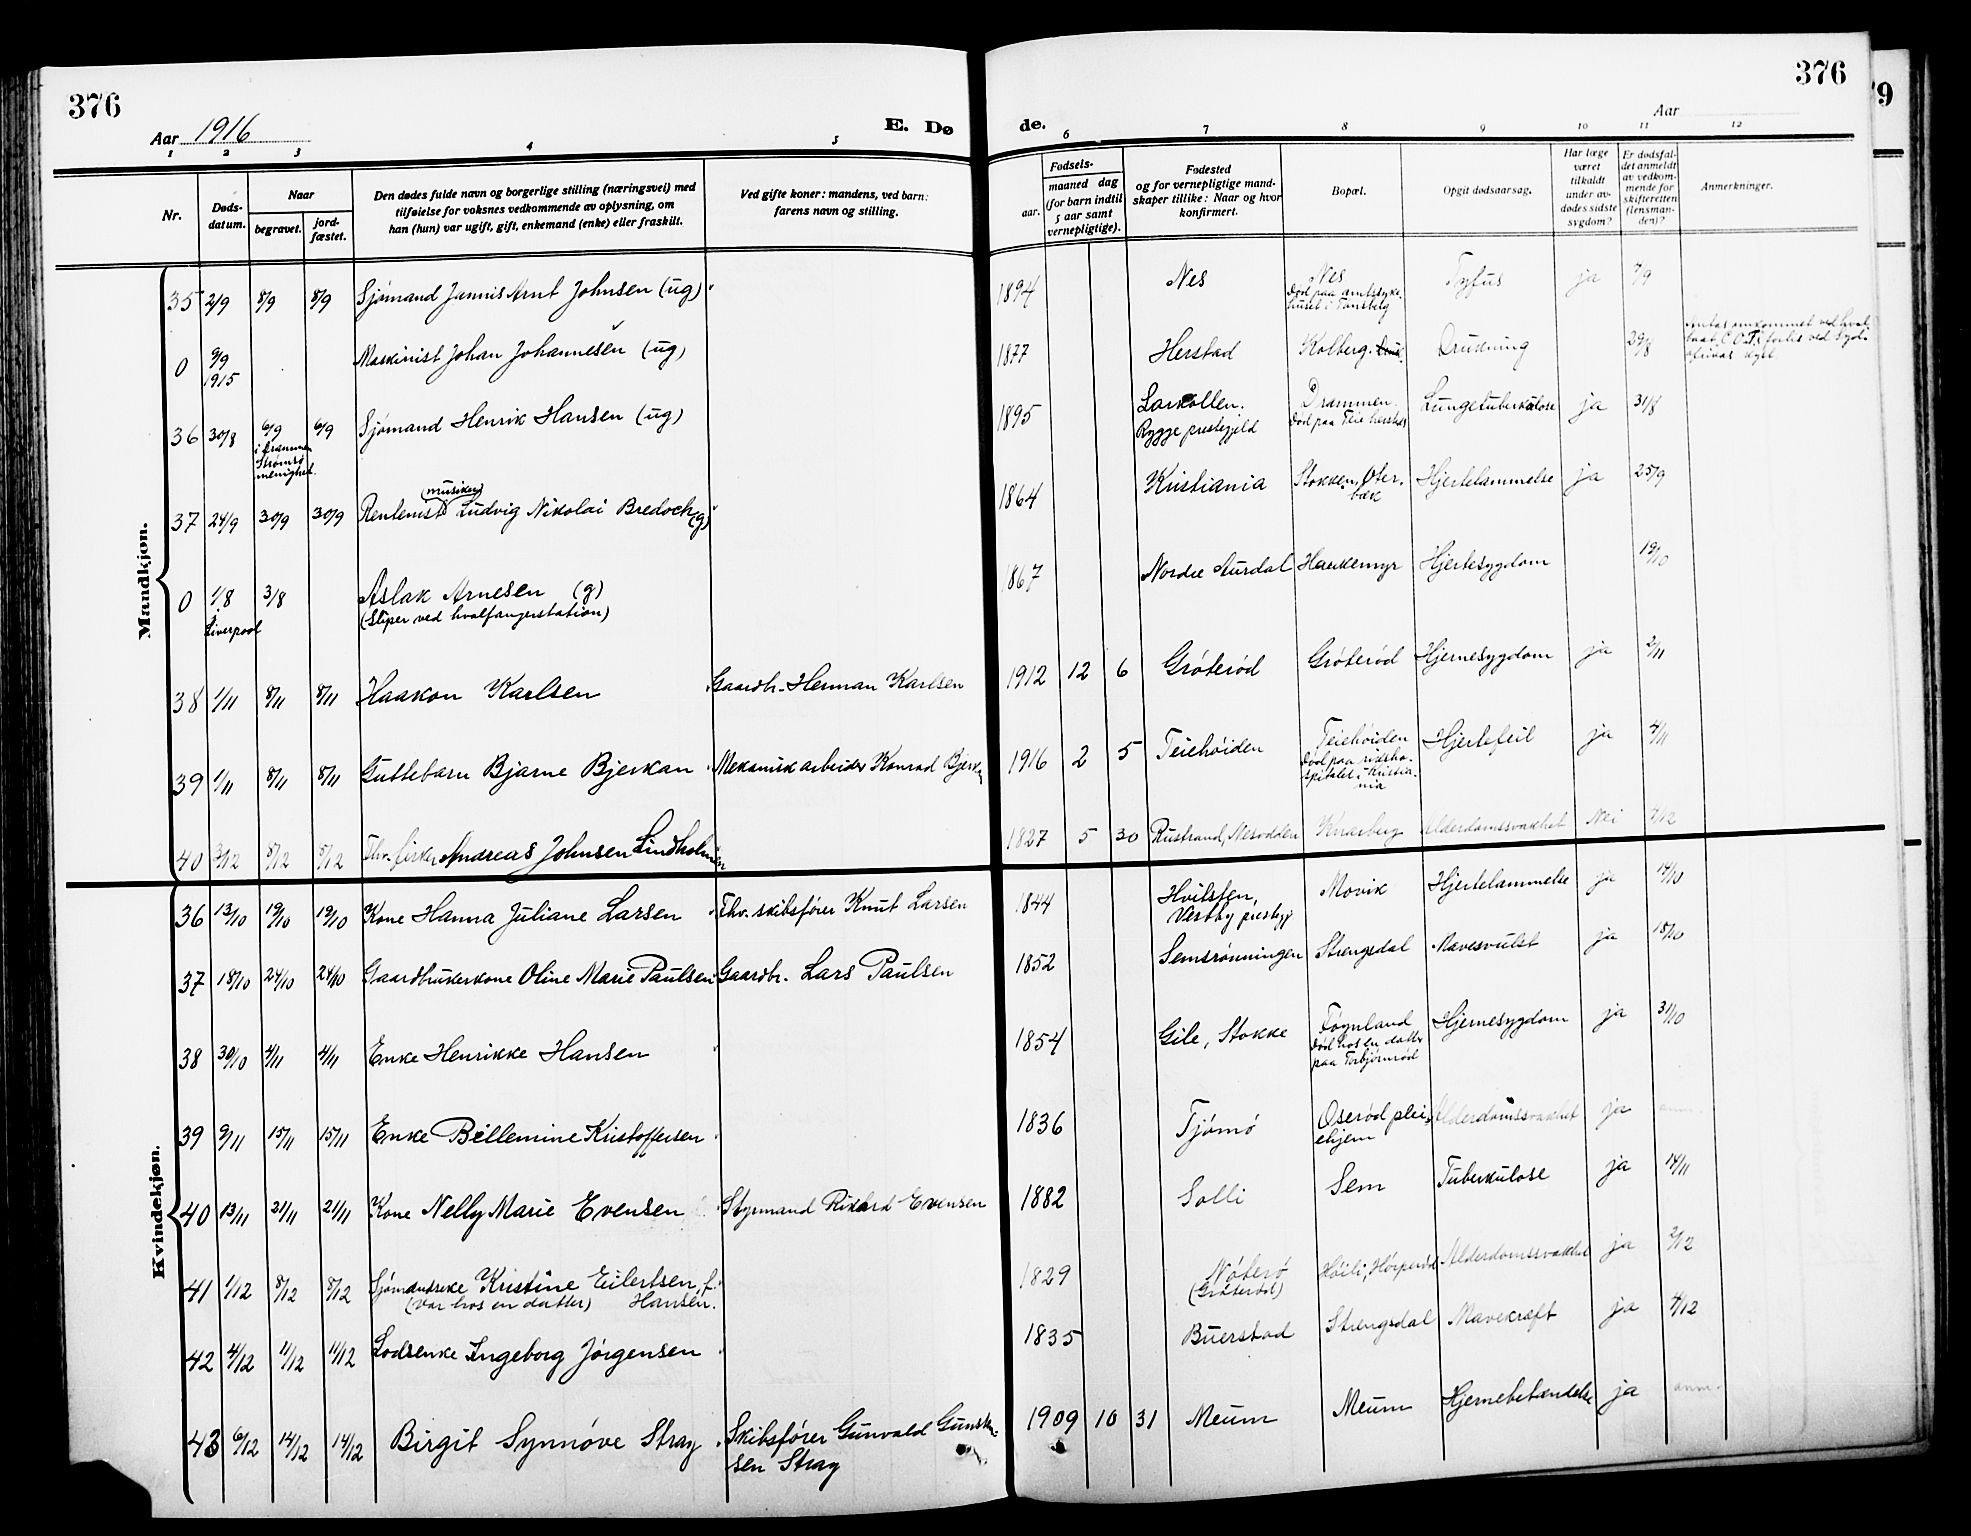 376
376
79
Aar 1916
E. Dø
de.
Aar
1 2 3 4 5 6 7 8 9 10 11 12
Nr.
Døds-
datum.
Naar
begravet.
jord-
fæstet.
Den dødes fulde navn og borgerlige stilling (næringsvei) med
tilføielse for voksnes vedkommende av oplysning, om
han (hun) var ugift, gift, enkemand (enke) eller fraskilt.
Ved gifte koner: mandens, ved barn:
farens navn og stilling.
Fødsels-
aar.
maaned dag
(for barn indtil
5 aar samt
vernepligtige).
Fødested
og for vernepligtige mand-
skaper tillike: Naar og hvor
konfirmert.
Bopæl.
Opgit dødsaarsag.
Har læge
været
tilkaldt
under av-
dødes sidste
sygdom?
Er dødsfal-
det anmeldt
av vedkom-
mende for
skifteretten
(lensman-
den)?
Anmerkninger.
Mandkjøn.
35 2/9 8/9 8/9 Sjømand Jannis Arnt Johnsen (ug) 1894 Nes Nes Tyfus ja 7/9
Død paa amtssyke-
huset i Tønsberg
0 9/9 Maskinist Johan Johannesen (ug) 1877 Herstad Kolberg. Drukning 29/8
1915
36 30/8 6/9 6/9 Sjømand Henrik Hansen (ug) 1895 Larkollen. Drammen. Lungetuberkulose ja 31/8
i Drammen
Strømsø
menighed.
Rygge prestegjeld Død paa Teie
37 24/9 30/9 30/9 Rentenist (musiker) Ludvig Nikolai Bredoch (g) 1864 Kristiania Stokken, Oter- Hjertelammelse ja 25/9
bæk
0 1/8 3/8 Aslak Arnesen (g) 1867 Nordre Aurdal Haukemyr Hjertesygdom 19/10
i
Liverpool
(Sliper ved hvalfangerstation)
38 1/11 8/11 8/11 Haakon Karlsen Gaardbr. Herman Karlsen 1912 12 6 Grøterød Grøterød Hjernesygdom ja 2/11
39 1/11 8/11 8/11 Guttebarn Bjarne Bjerkan Mekanisk arbeider Konrad Bjerkan 1916 2 5 Teiehøiden Teiehøiden Hjertefeil ja 4/11
Død paa riksho-
spitalet i Kristia-
nia
40 3/12 8/12 8/12 Fhv. fisker Andreas Johnsen Lindholmen 1827 5 30 Rustrand, Nesodden Knarberg Alderdomssvakhet Nei 4/12
Kvindekjøn.
36 13/10 19/10 19/10 Kone Hanna Juliane Larsen Fhv. skibsfører Knut Larsen 1844 Hvitsten, Movik Hjertelammelse ja 14/10
Vestby prestegj
37 18/10 24/10 24/10 Gaardbrukerkone Oline Marie Paulsen Gaardbr. Lars Paulsen 1852 Semsrønningen Strengsdal Mavesvulst ja 18/10
38 30/10 4/11 4/11 Enke Henrikke Hansen 1854 Gile, Stokke Føynland Hjernesygdom ja 31/10
Død hos en datter
paa Torbjørnrød
39 9/11 15/11 15/11 Enke Billemine Kristoffersen 1836 Tjømø Oserød plei- Alderdomssvakhet ja anm.
ehjem
40 13/11 21/11 21/11 Kone Nelly Marie Evensen Styrmand Rikard Evensen 1882 Solli Sem Tuberkulose ja 14/11
41 1/12 8/12 8/12 Sjømandsenke Kristine Eilertsen, f. 1829 Nøterø Høili, Hørperød Alderdomssvakhet ja 2/12
(var hos en datter) Hansen. (Grøterød)
42 4/12 11/12 11/12 Lodsenke Ingeborg Jørgensen 1835 Buerstad Strengsdal Mavekræft ja 4/12
43 6/12 14/12 14/12 Birgit Synnøve Stray Skibsfører Gunvald Gunsten- 1909 10 31 Meum Meum Hjernebetændelse ja anm.
sen Stray